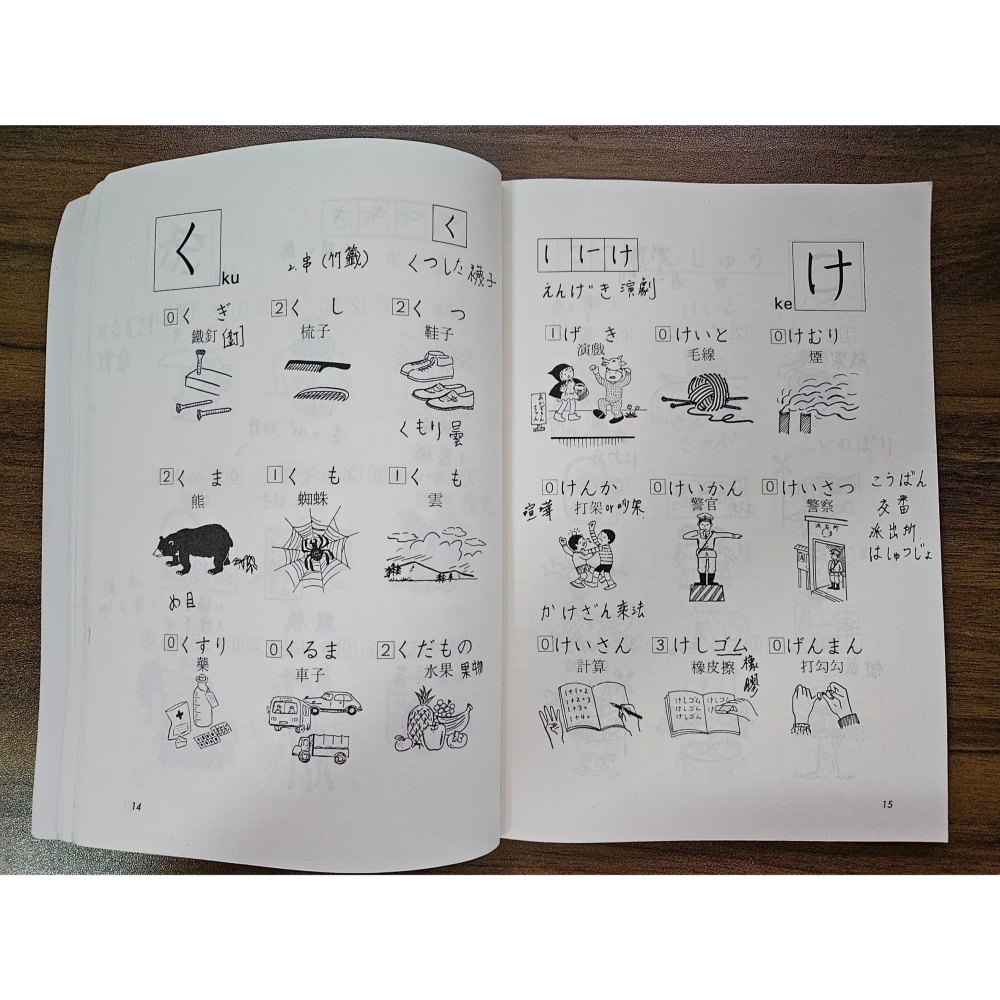 く
ku
く
2.串(竹籤)
くつした襪子
0くぎ
鐵釘[釘]
2くし
梳子
2くつ
鞋子
くもり曇
2くま
熊
1くも
蜘蛛
1くも
雲
め目
0くすり
藥
0くるま
車子
2くだもの
水果 果物
14
け
ke
け
えんげき演劇
1げき
演戲
0けいと
毛線
0けむり
煙
0けんか
喧嘩 打架or吵架
0けいかん
警官
0けいさつ
警察
派出所
こうばん
交番
派出所
はしゅつじょ
かけざん乘法
0けいさん
計算
3けしゴム
橡皮擦 橡膠
けしゴム
けしゴム
けしゴム
けしゴム
けしゴム
0げんまん
打勾勾
15